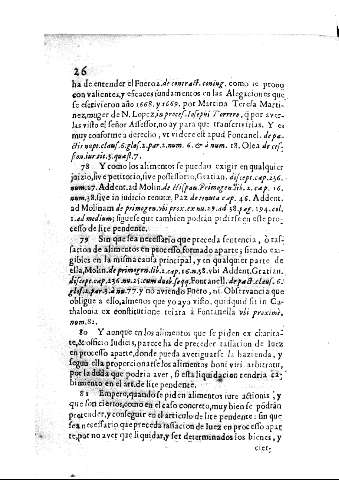 26
ha de entender el Fuero 2. de contract. coniug. como se prouó
con valientes, y eficaces fundamentos en las Alegaciones que
se escriuieron año 1668. y 1669. por Martina Teresa Marti-
nez, muger de N. Lopez, in process. Iosephi Torrero, q por auer-
las visto el señor Assessor, no ay para que transcriuirlas. Y es
muy conforme a derecho, vt videre est apud Fontanel. de pa-
ctis nupt. clausf. 6. glos. 2. par. 2. num. 6. & à num. 18. Olea de ces-
sion. iur. tit. 3. quæst. 7.
78 Y como los alimentos se puedan exigir en qualquier
juizio, siue petitorio, siue possessorio, Gratian. discept. cap. 256.
num. 27. Addent. ad Molin. de Hispan. Primogen. lib. 2. cap. 16.
num. 38. siue in iudicio tenutæ, Paz de tenuta cap. 46. Addent.
ad Molinam de primogen. lib. prox. ex nu. 29. ad 38. pag. 194. col.
2. ad medium; siguese que tambien podràn pidirse en este pro-
cesso de lite pendente.
79 Sin que sea necessario que preceda sentencia, ò tas-
sacion de alimentos en processo, formado aparte; siendo exi-
gibles en la misma causa principal, y en qualquier parte de
ella, Molin. de primogen. lib. 2. cap. 16. n. 38. vbi Addent. Gratian.
discept. cap. 256. nu. 25. cum duob. seqq. Fontanell. de pact. clausf. 6.
glos. 2. par. 3. à nu. 77. y no auiendo Fuero, ni Obseruancia que
obligue a ello, almenos que yo aya visto, quidquid sit in Ca-
thalonia ex constitutione teiara à Fontanella vbi proximè,
num. 82.
80 Y aunque en los alimentos que se piden ex charita-
te, & officio Iudicis, parece ha de preceder tassacion de Iuez
en processo aparte, donde pueda aueriguarse la hazienda, y
segun ella proporcionarse los alimentos boni viri arbitratu,
por la duda que podria aver, si esta liquidacion tendria ca-
bimiento en el art. de lite pendente.
81 Empero, quando se piden alimentos iure actionis, y
que son ciertos, como en el caso concreto, muy bien se podràn
pretender, y conseguir en el articulo de lite pendente: sin que
sea necessario que preceda tassacion de Iuez en processo apar-
te, por no aver que liquidar, y ser determinados los bienes, y
cier-